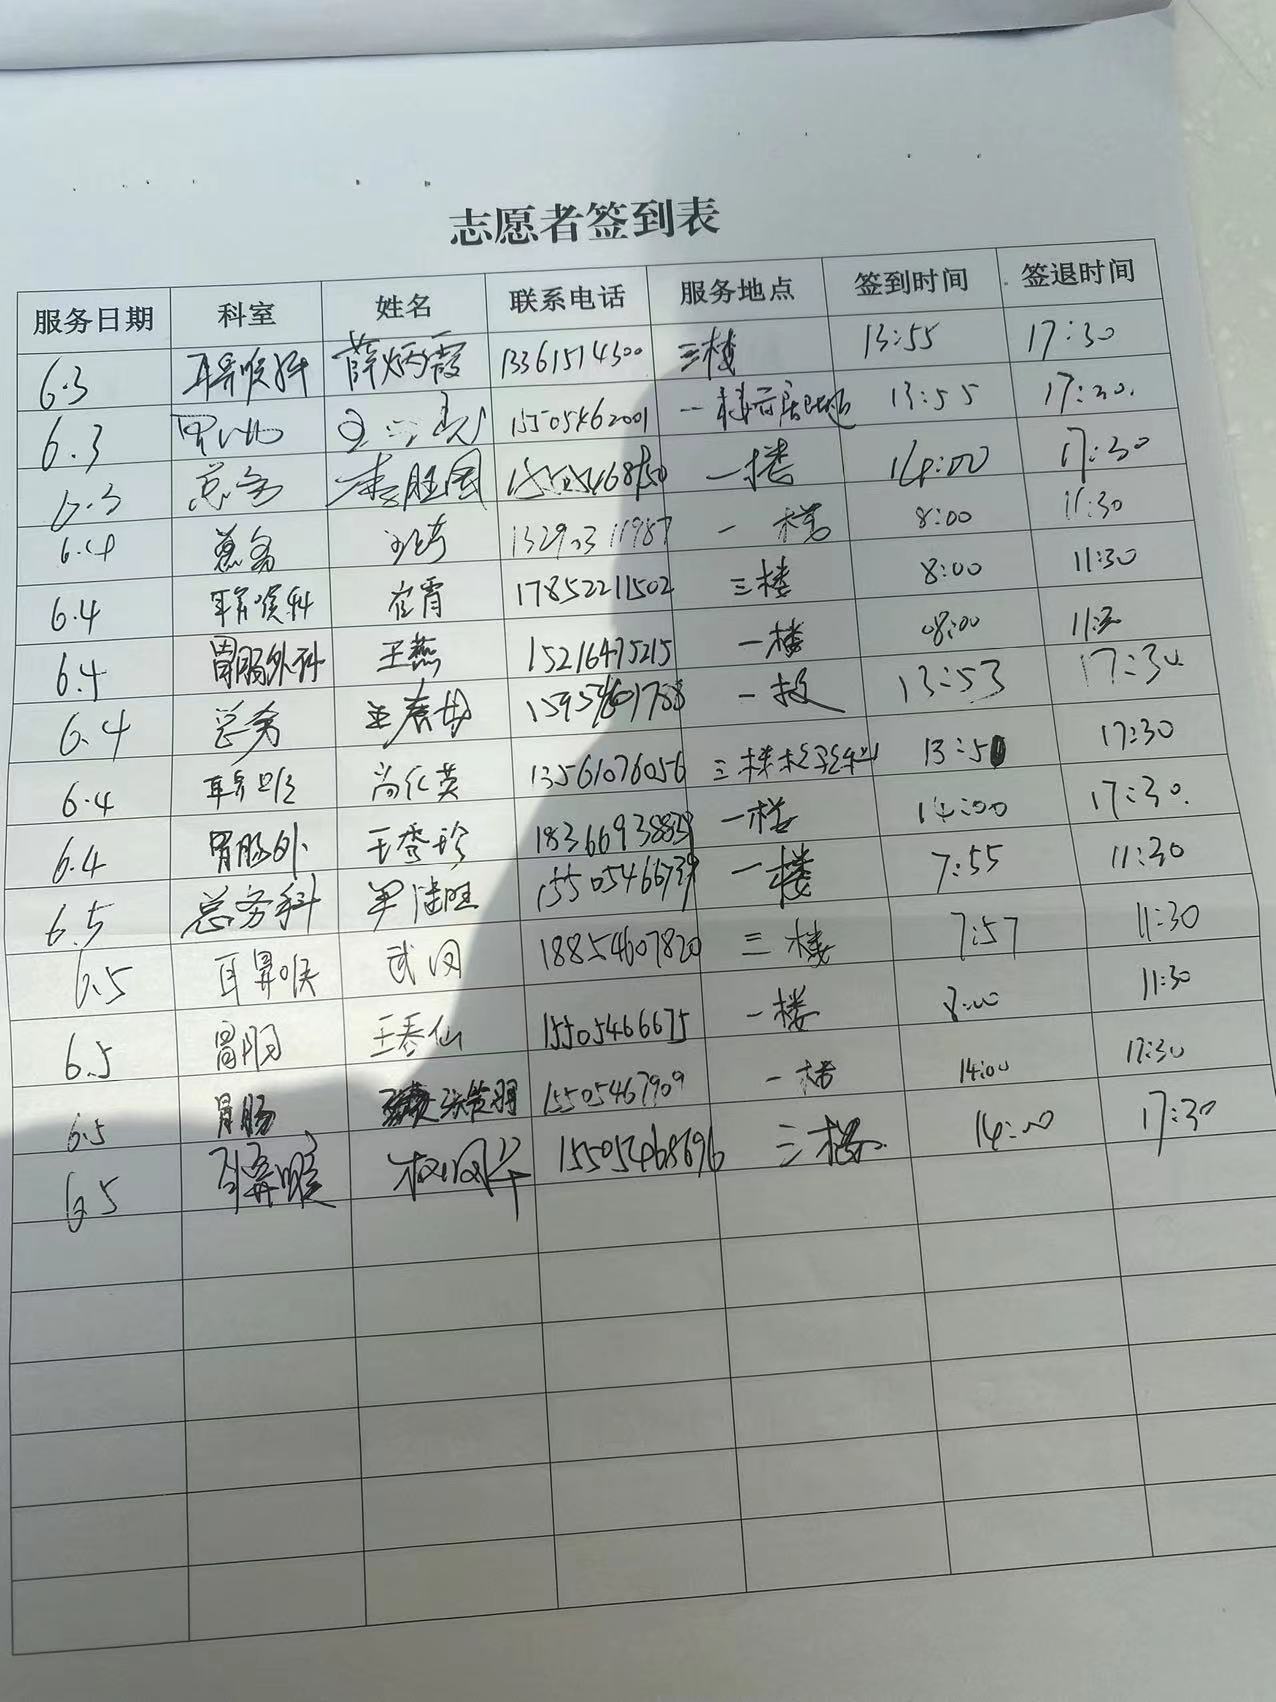 志愿者签到表
服务日期 科室 姓名 联系电话 服务地点 签到时间 签退时间
6.3 耳鼻喉科 薛炳霞 13361514300 三楼 13:55 17:30
6.3 15505462001 一楼 13:55 17:30.
6.3 总务 李胜国 一楼 14:00 17:30
6.4 总务 一楼 8:00 11:30
6.4 耳鼻喉科 崔霄 17852211502 三楼 8:00 11:30
6.4 胃肠外科 王燕 15216475215 一楼 08:00 11:30
6.4 总务 一楼 13:53 17:30
6.4 耳鼻喉 尚化英 13561076056 三楼 13:50 17:30
6.4 胃肠外 王秀珍 18366938839 一楼 14:00 17:30.
6.5 总务科 15505466739 一楼 7:55 11:30
6.5 耳鼻喉 武汉 18854607820 三楼 7:57 11:30
6.5 胃肠 王春仙 15505466675 一楼 8:00 11:30
6.5 胃肠 15505467909 一楼 14:00 17:30
6.5 耳鼻喉 15505468696 三楼 14:00 17:30